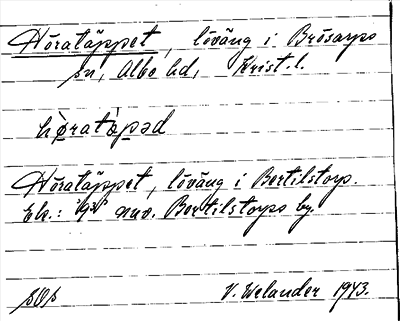 Höratäppet, löväng i Brösarps
sn, Albo hd, Krist. l.
Höratäppet, löväng i Bertilstorp.
nuv. Bertilstorps by.
V. Welander 1943.